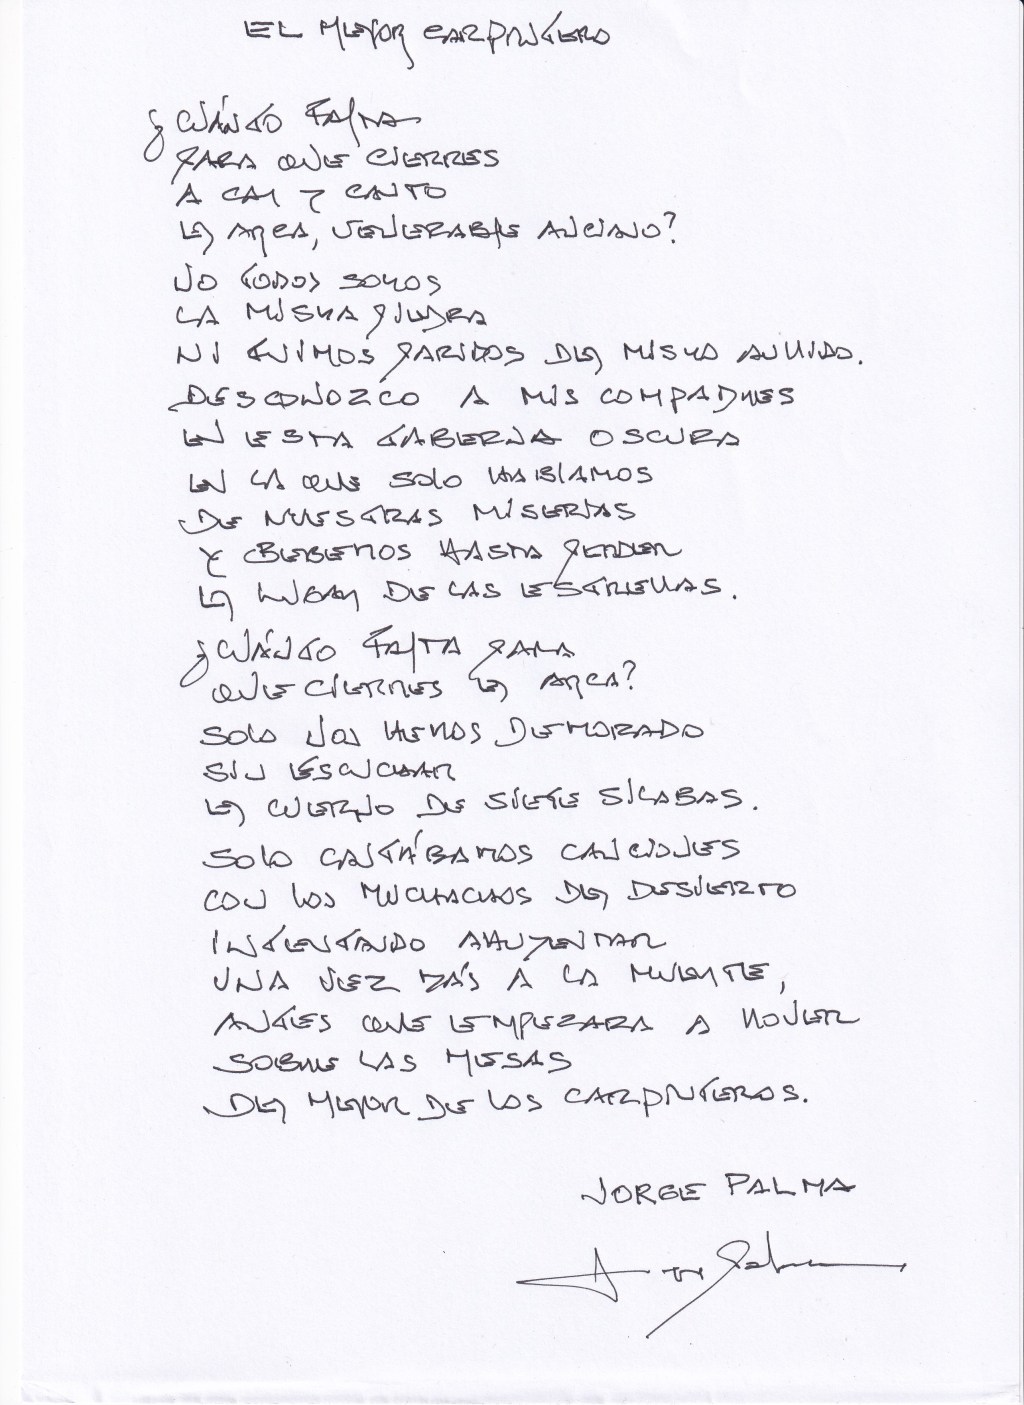 EL MEJOR CARPINTERO
¿CUÁNTO FALTA
PARA QUE CIERRES
A CAL Y CANTO
EL ARCA, VENERABLE ANCIANO?
NO TODOS SOMOS
LA MISMA PIEDRA
NI FUIMOS PARIDOS DEL MISMO AULLIDO.
DESCONOZCO A MIS COMPADRES
EN ESTA TABERNA OSCURA
EN LA QUE SOLO HABLAMOS
DE NUESTRAS MISERIAS
Y BEBEMOS HASTA PERDER
EL LUGAR DE LAS ESTRELLAS.
¿CUÁNTO FALTA PARA
QUE CIERRES EL ARCA?
SOLO NOS HEMOS DEMORADO
SIN ESCUCHAR
EL CUERNO DE SIETE SÍLABAS.
SOLO CANTÁBAMOS CANCIONES
CON LOS MUCHACHOS DEL DESIERTO
INTENTANDO AHUYENTAR
UNA VEZ MÁS A LA MUERTE,
ANTES QUE EMPEZARA A LLOVER
SOBRE LAS MESAS
DEL MEJOR DE LOS CARPINTEROS.
JORGE PALMA